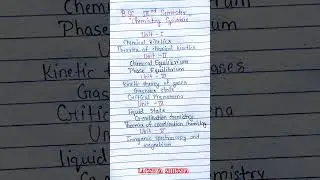 B.Sc IInd Semester
Chemistry Syllabus
Unit - I
Chemical Kinetics
Theories of chemical kinetics
Unit - II
Chemical Equilibrium
Phase Equilibrium
Unit - III
Kinetic theory of gases
Gaseous state
Critical Phenomena
Unit - IV
Liquid state
Co-ordination chemistry
Theories of coordination chemistry
Unit - V
Inorganic spectroscopy and
magnetism